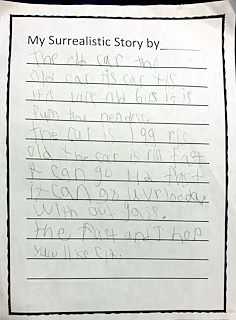 My Surrealistic Story by
The old car the
old car tis car tis
it is vire old bius it is
fum the
time car is 199
old the car is rill fast
it can go 112 thast
it can go
with out gass.
the fast and I hop
you like it.